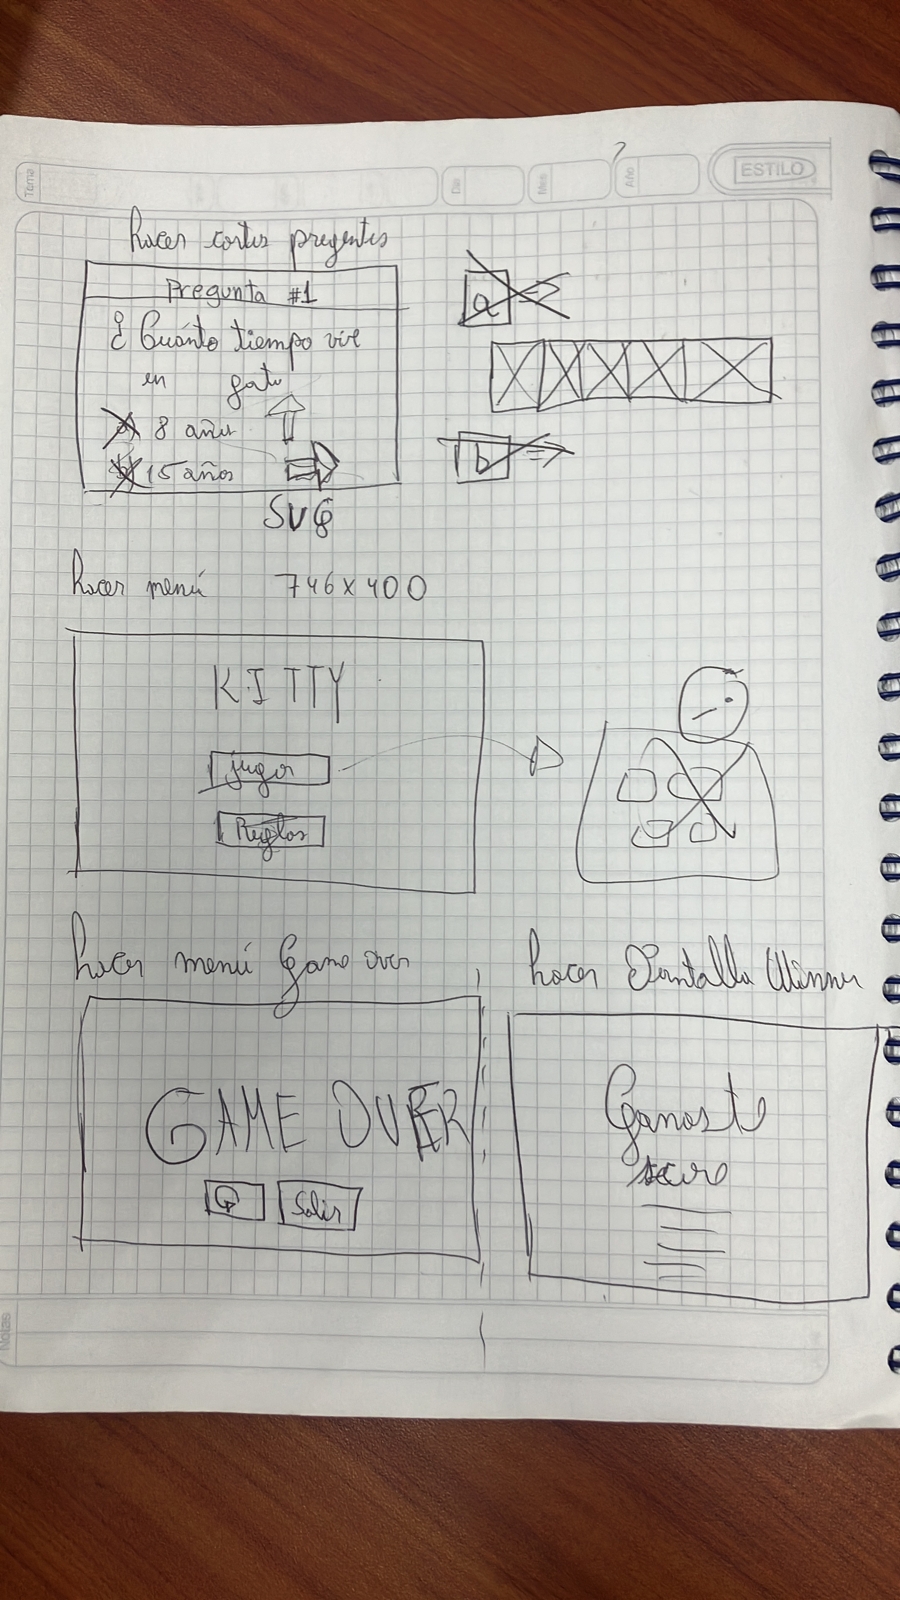 Tema
Dia
Mes
Año
ESTILO
?
hacer cortes preguntas
Pregunta #1
¿Cuánto tiempo vive
un gato
a) 8 años
b) 15 años
SVG
a
b
hacer menú 746x400
KITTY
jugar
Reglas
hacer menú Game over
GAME OVER
Salir
hacer Pantalla Winner
Ganaste
score
Notas